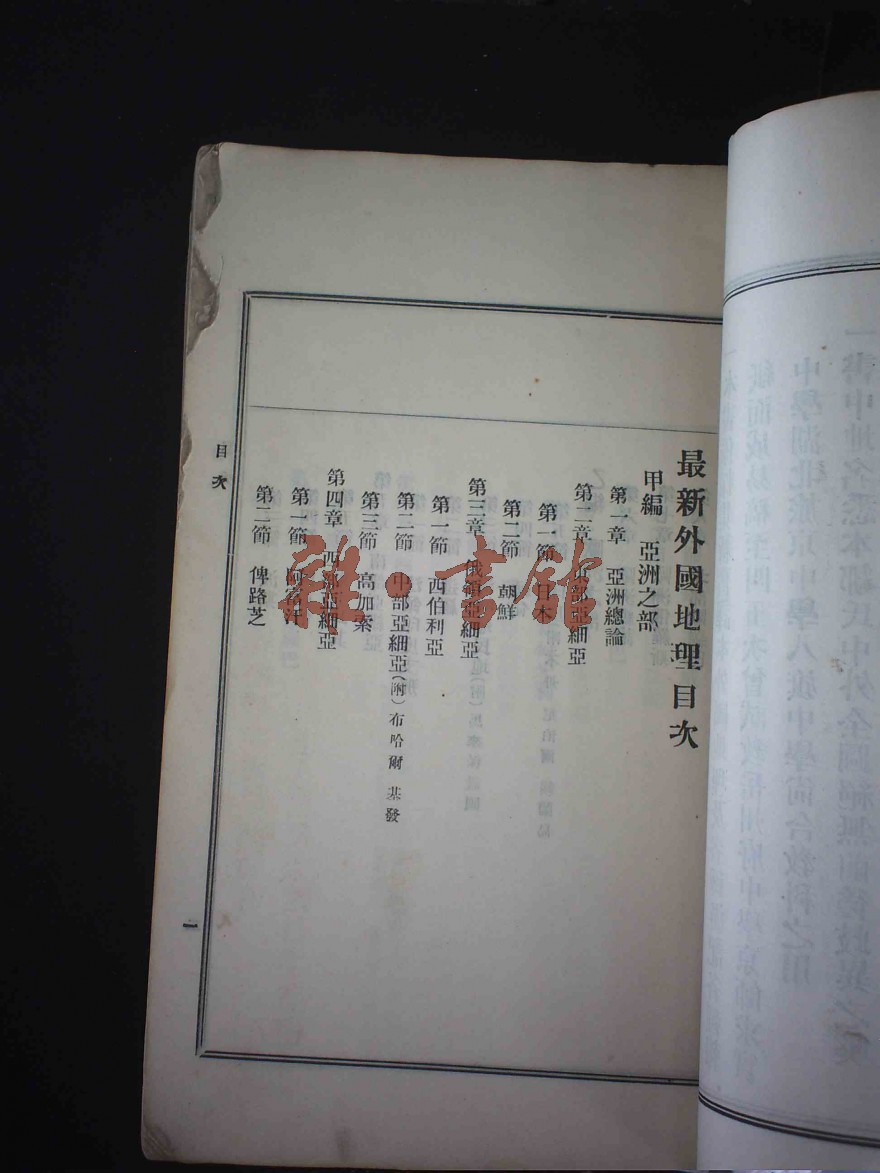 最新外國地理目次
甲編 亞洲之部
第一章 亞洲總論
第二章 東部亞細亞
第一節 日本
第二節 朝鮮
第三章 俄領亞細亞
第一節 西伯利亞
第二節 中部亞細亞(附)布哈爾 基發
第三節 高加索
第四章 西部亞細亞
第一節 阿富汗
第二節 俾路芝
目次
一
雜·書館